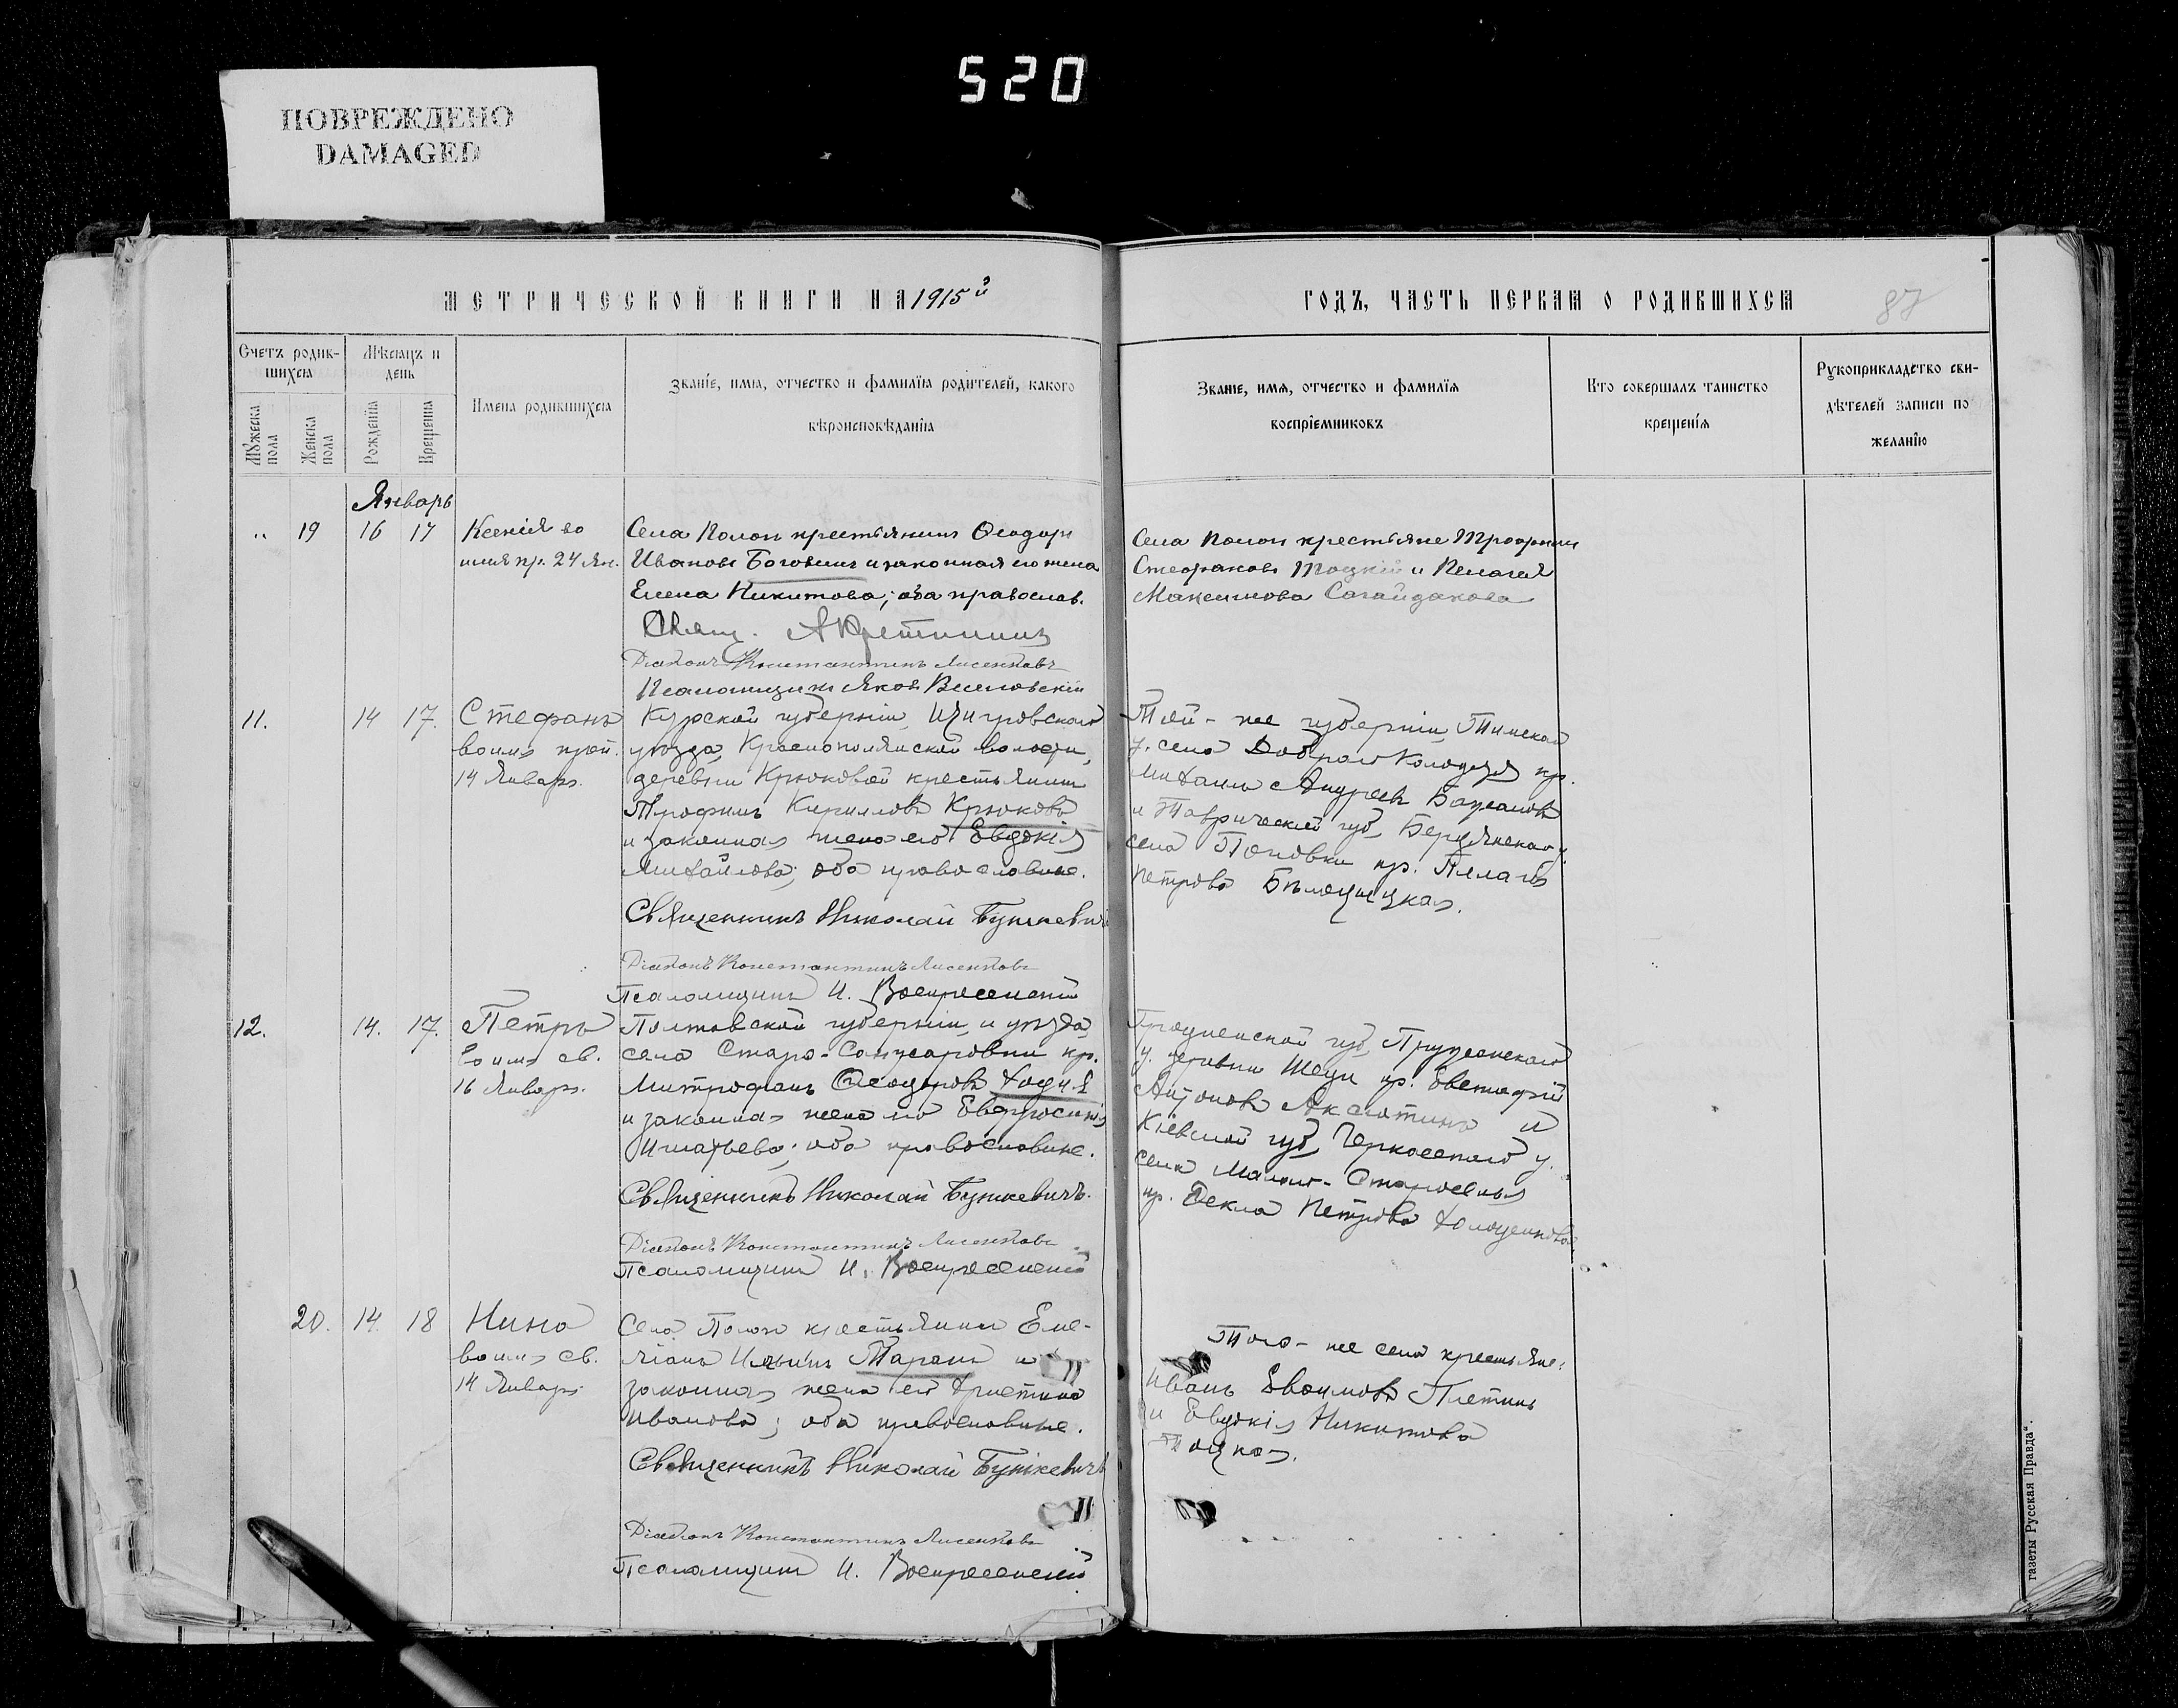 520
ПОВРЕЖДЕНО
DAMAGED
МЕТРИЧЕСКОЙ КНИГИ НА 1915й
ГОДЪ, ЧАСТЬ ПЕРВАЯ О РОДИВШИХСЯ
87
Счетъ родив-
шихся
Мѣсяцъ и
день
Мужеска
пола
Женска
пола
Рожденія
Крещенія
Имена родившихся
Званіе, имя, отчество и фамилія родителей, какого
вѣроисповѣданія
Званіе, имя, отчество и фамилія
воспріемниковъ
Кто совершалъ таинство
крещенія
Рукоприкладство сви-
дѣтелей записи по
желанію
Январь
19 16 17
Ксенія во
имя пр. 24 Ян.
Села Попои крестьянинъ Ѳеодоръ
Ивановъ и законная его жена
Елена Никитова; оба православ.
Свящ.
Діаконъ Константинъ Лисенковъ
Псаломщикъ Яковъ Веселовскій
Села крестьяне Трофимъ
Стефановъ Тоцкій и Пелагея
Максимова Сагайдакова
11. 14 17.
Стефанъ
во имя преп.
14 Январь.
Курской губерніи, Щигровскаго
уѣзда, Краснополянской волости,
деревни Крюковой крестьянинъ
Трофимъ Кирилловъ Крюковъ
и законная жена его Евдокія
Михайлова; оба православные.
Священникъ Николай Бушкевичъ
Діаконъ Константинъ Лисенковъ
Псаломщикъ И. Воскресенскій
Той-же губерніи, Тимской
у. села Доброго Колодезя кр.
Михаилъ Андреевъ
и Таврической губ. Бердянскаго у.
села Поповки кр. Пелагія
Петрова
12. 14. 17.
Петръ
во имя св.
16 Январь.
Полтавской губерніи, и уѣзда,
села Старо-Санжаровки кр.
Митрофанъ Ѳеодоровъ Ходия
и законная жена его Евфросинія
Игнатьева; оба православные.
Священникъ Николай Бушкевичъ.
Діаконъ Константинъ Лисенковъ
Псаломщикъ И. Воскресенскій
Гродненской губ. Пружанскаго
у. деревни кр. Евстафій
Антоновъ и
Кіевской губ. Черкасскаго у.
села Малое-Староселья
кр. Ѳекла Петрова
20. 14. 18
Нина
во имя св.
14 Январь.
Села крестьянинъ Еме-
ліанъ Ильинъ Таранъ и
законная жена его Христина
Иванова; оба православные.
Священникъ Николай Бушкевичъ
Діаконъ Константинъ Лисенковъ
Псаломщикъ И. Воскресенскій
Того-же села крестьяне:
Иванъ Евѳимовъ Плетинь
и Евдокія Никитова
Тоцкая.
газеты Русская Правда“.